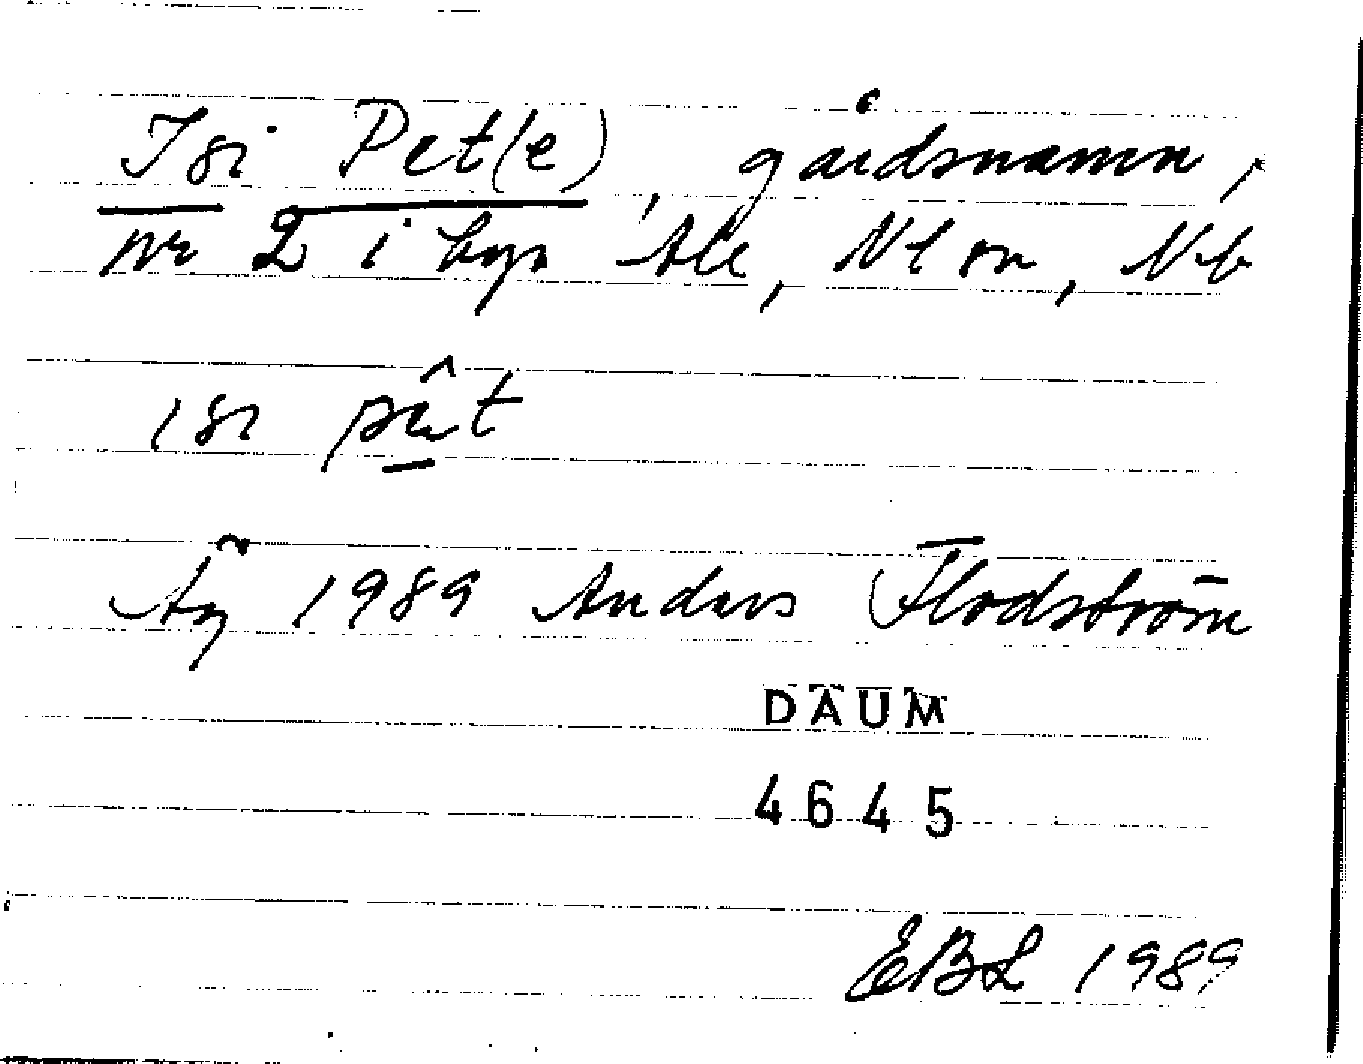 Isi Pet(e), gårdsnamn,
nr 2 i byn Ale, Nl sn, Nb
isi
Äg 1989 Anders Flodström
DAUM
4645
EBL 1989